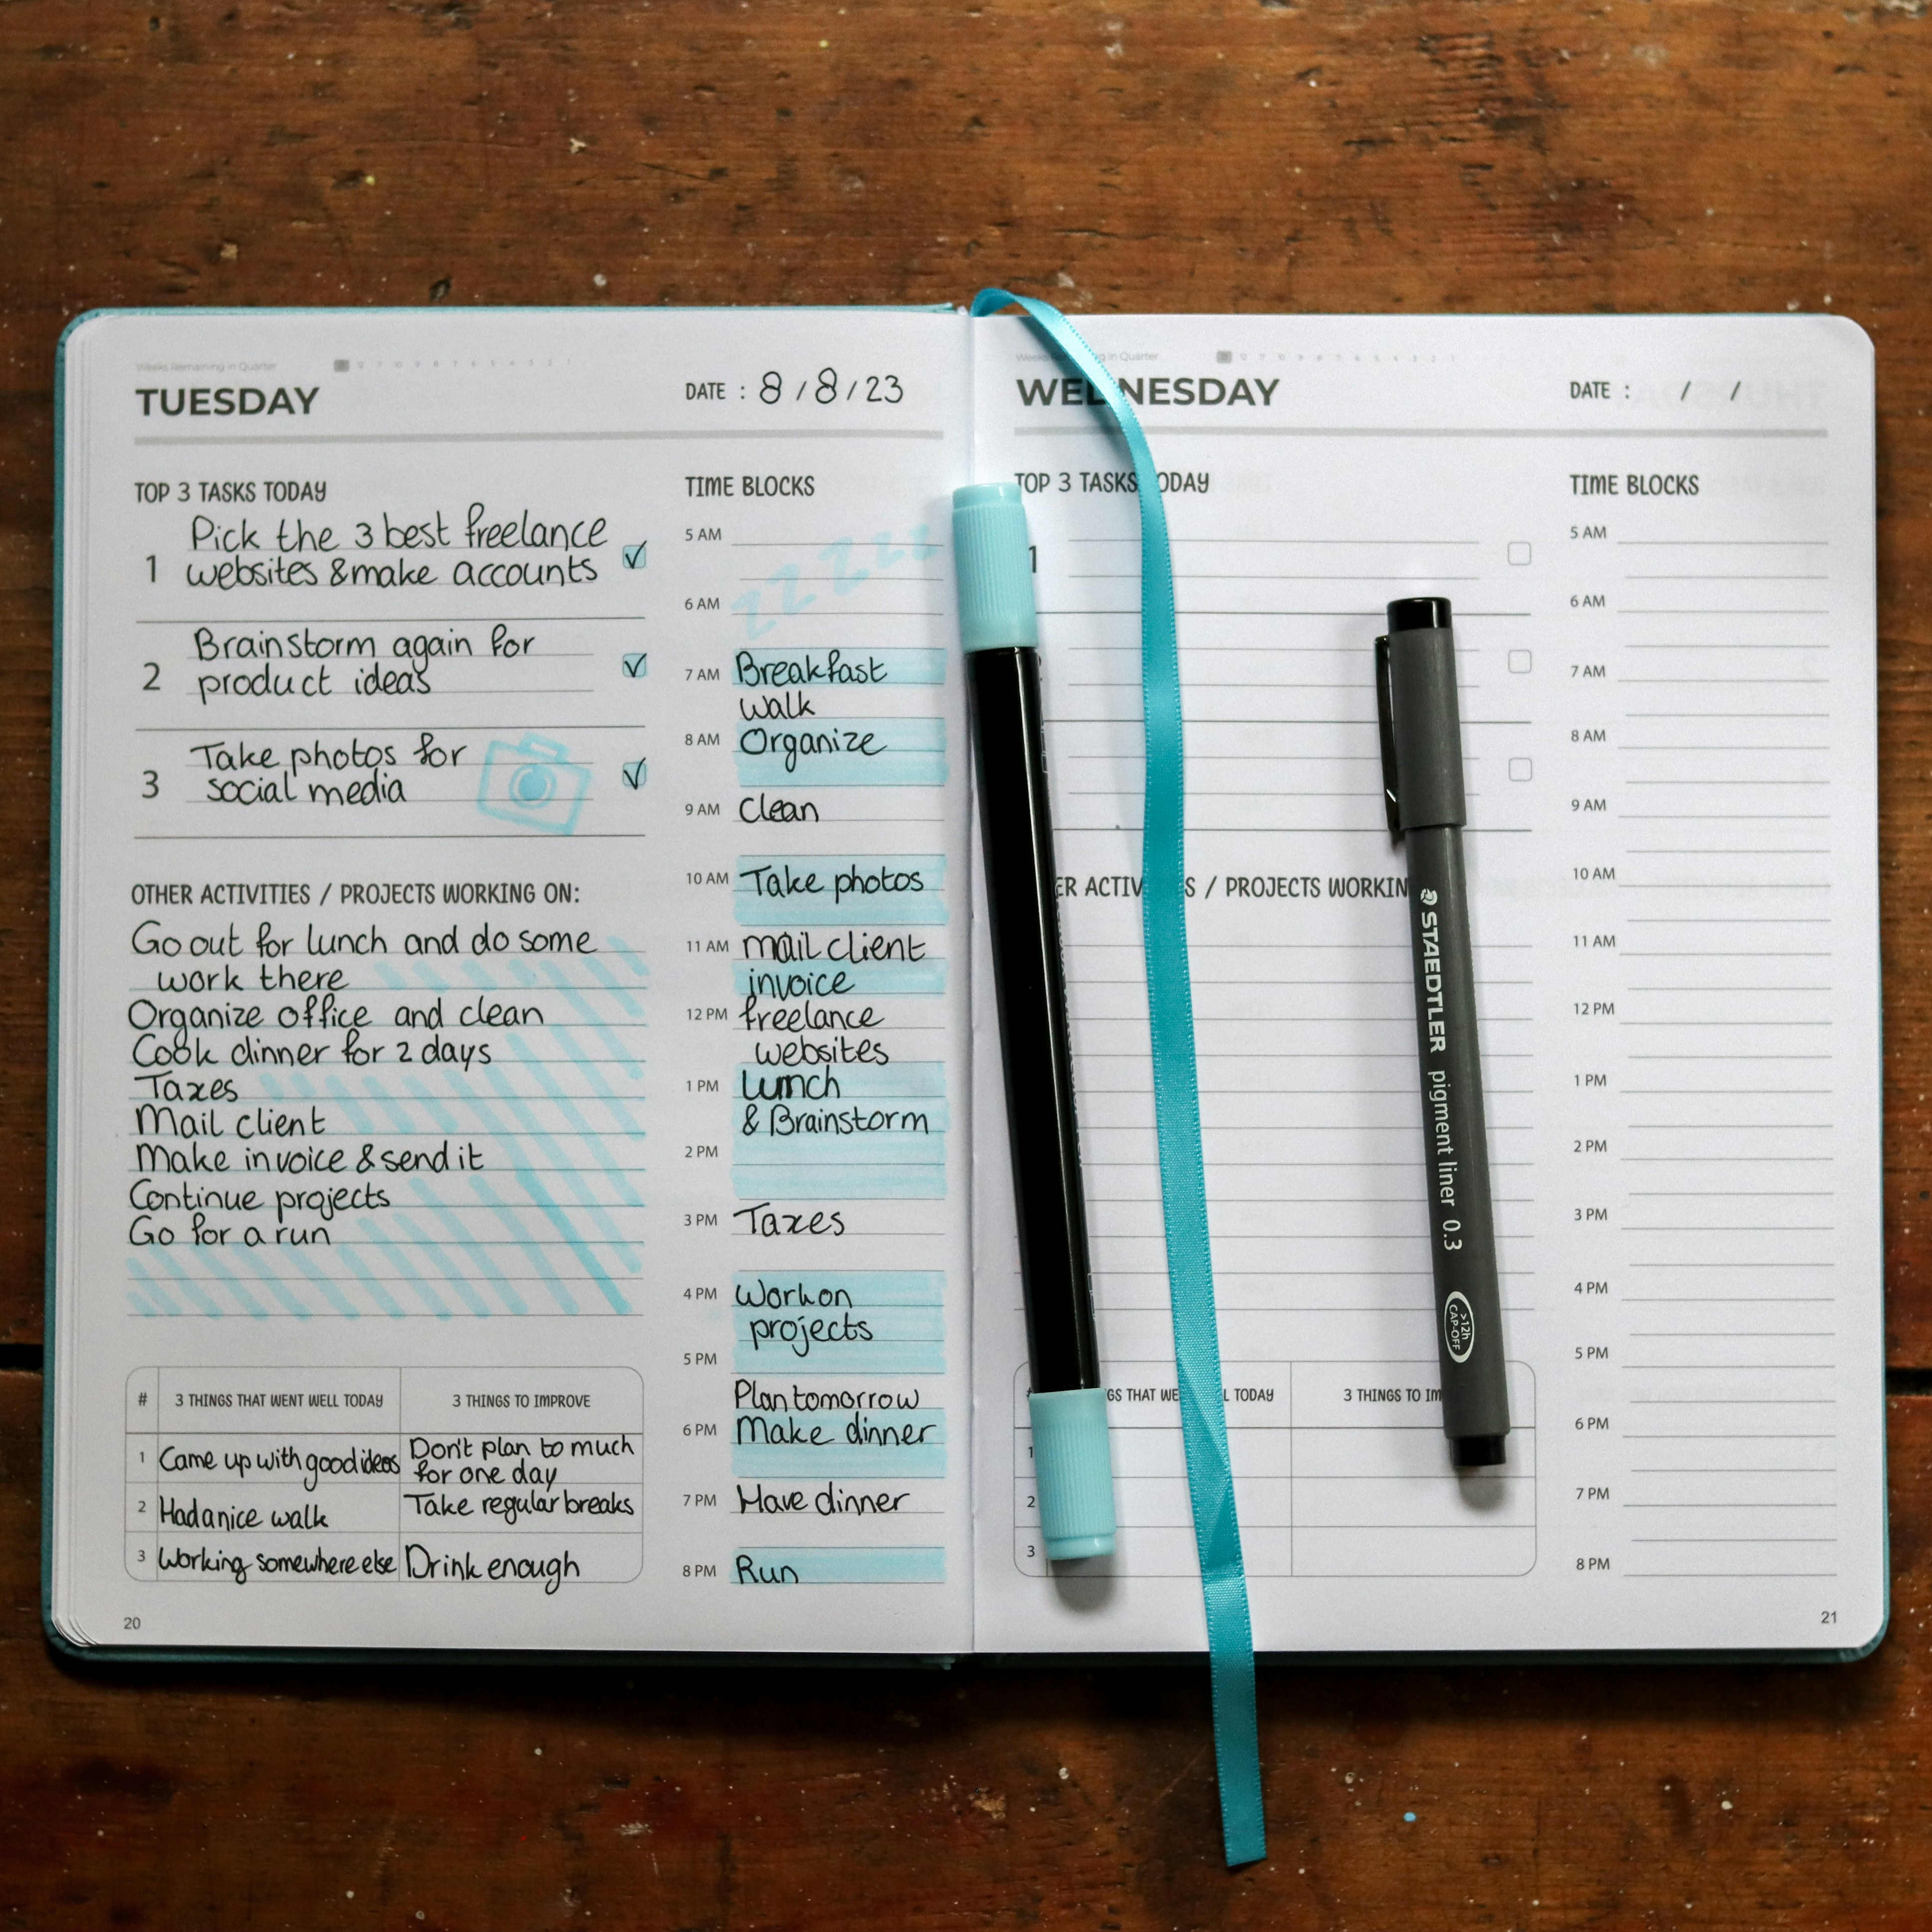 Weeks Remaining in Quarter
TUESDAY
DATE : 8 / 8 / 23
TOP 3 TASKS TODAY
1 Pick the 3 best freelance
websites & make accounts
2 Brainstorm again for
product ideas
3 Take photos for
social media
OTHER ACTIVITIES / PROJECTS WORKING ON:
Go out for lunch and do some
work there
Organize office and clean
Cook dinner for 2 days
Taxes
Mail client
Make invoice & send it
Continue projects
Go for a run
# 3 THINGS THAT WENT WELL TODAY 3 THINGS TO IMPROVE
1 Came up with good ideas Don't plan to much
for one day
2 Had a nice walk Take regular breaks
3 Working somewhere else Drink enough
20
TIME BLOCKS
5 AM
zzzzzz
6 AM
7 AM Breakfast
walk
8 AM Organize
9 AM Clean
10 AM Take photos
11 AM mail client
invoice
12 PM freelance
websites
1 PM Lunch
& Brainstorm
2 PM
3 PM Taxes
4 PM Work on
projects
5 PM
Plan tomorrow
6 PM Make dinner
7 PM Have dinner
8 PM Run
in Quarter
WEDNESDAY
DATE : / /
TOP 3 TASKS TODAY
1
ACTIV S / PROJECTS WORKIN
WE L TODAY 3 THINGS TO IM
1
2
3
TIME BLOCKS
5 AM
6 AM
7 AM
8 AM
9 AM
10 AM
11 AM
12 PM
1 PM
2 PM
3 PM
4 PM
5 PM
6 PM
7 PM
8 PM
21
STAEDTLER pigment liner 0.3
>12h
CAP-OFF